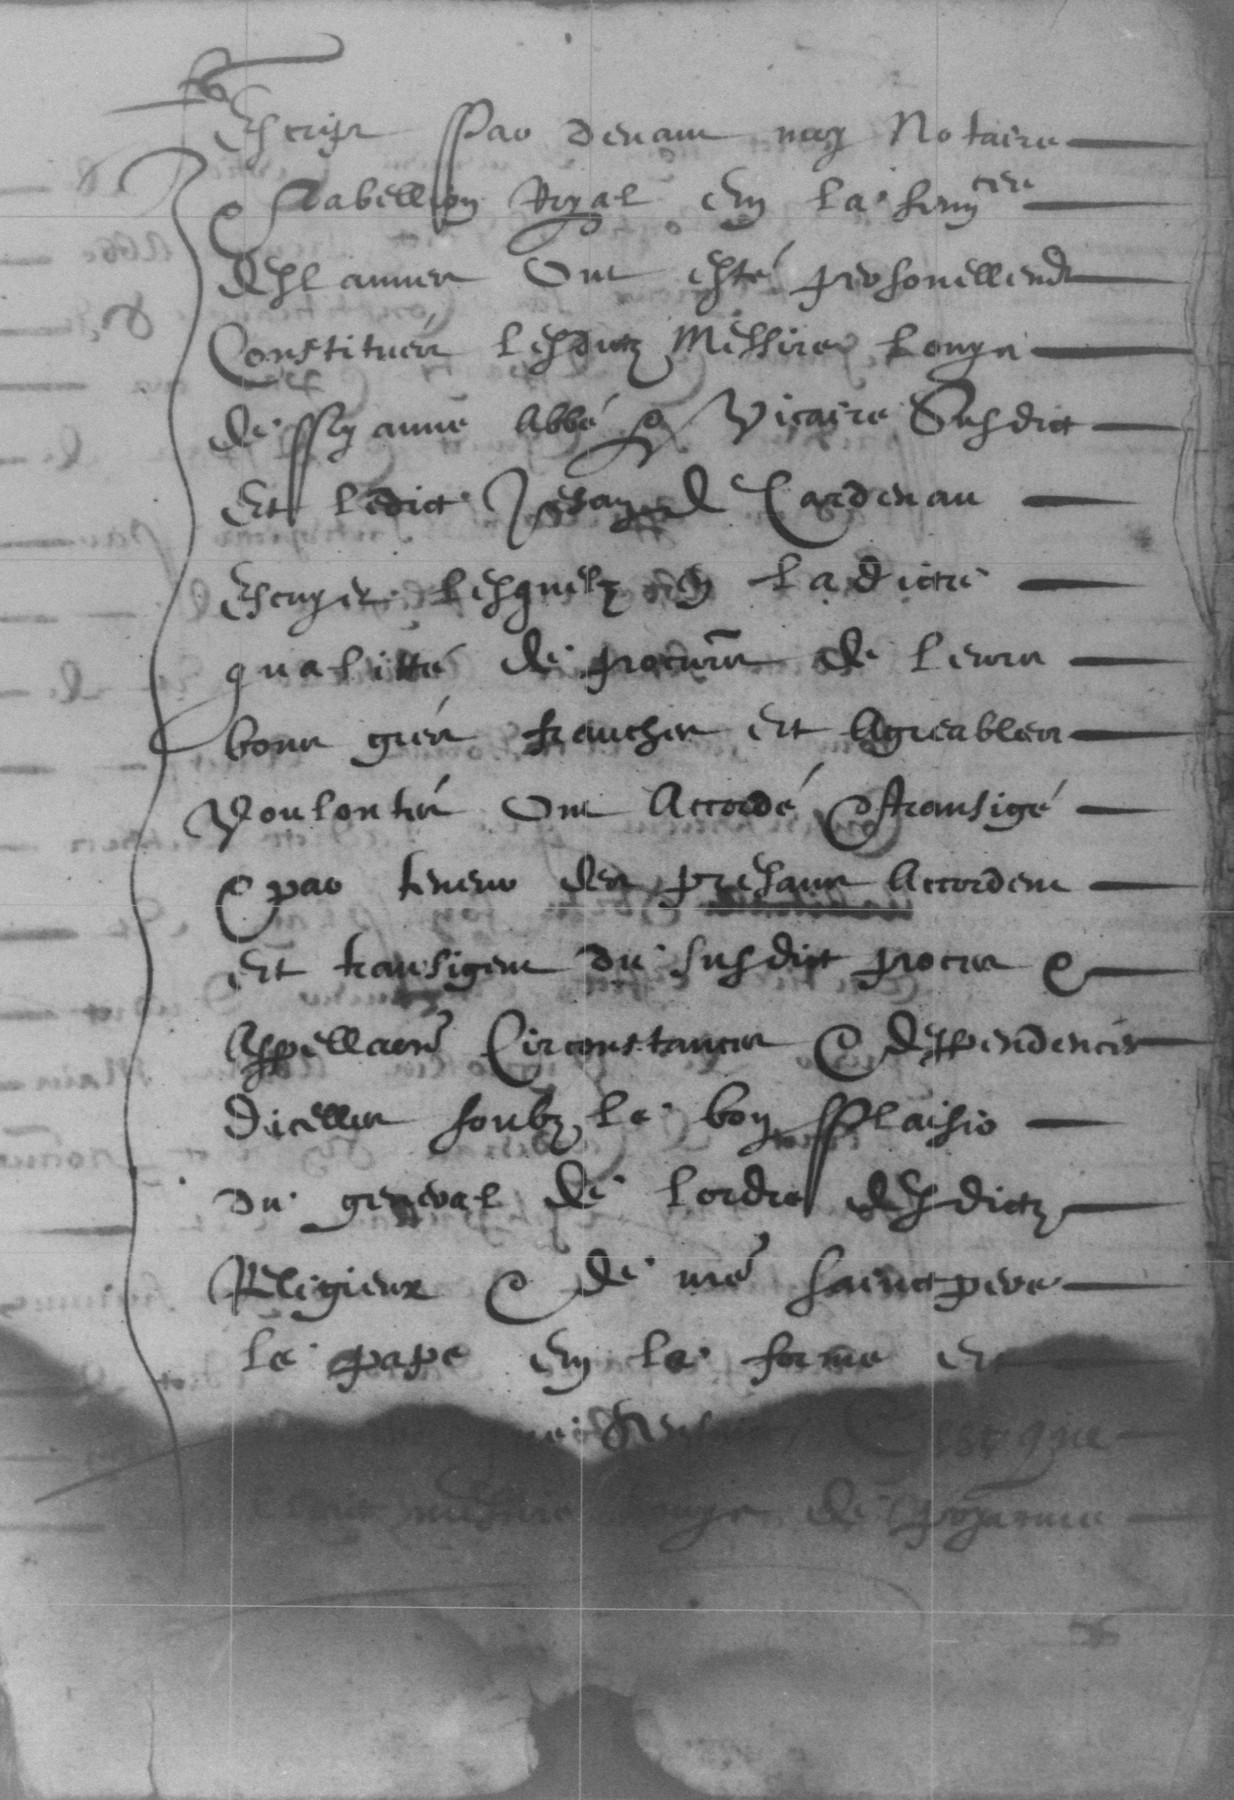 Escript Par devant moy Notaire
& tabellion Royal en la sen^cee
des lannes ont esté personellemt
Constitues lesdictz Messire Louys
de Poyanne Abbé & Vicaire Susdict
Et ledict Jehan de Cardenau
escuyer lesquelz en ladicte
qualitté de procurrs de leurs
bons grés franches et Agreables
Voulontés ont Accordé & transigé
& par teneur des presans Accordent
Et transigent du susdict proces &
Appellaõns Circonstances & deppendences
dicelles soubz le bon Plaisir
du general de lordre desdictz
Religieux & de nre sainct pere
le pape en la forme et
Cest que
messire Louys de Poyanne